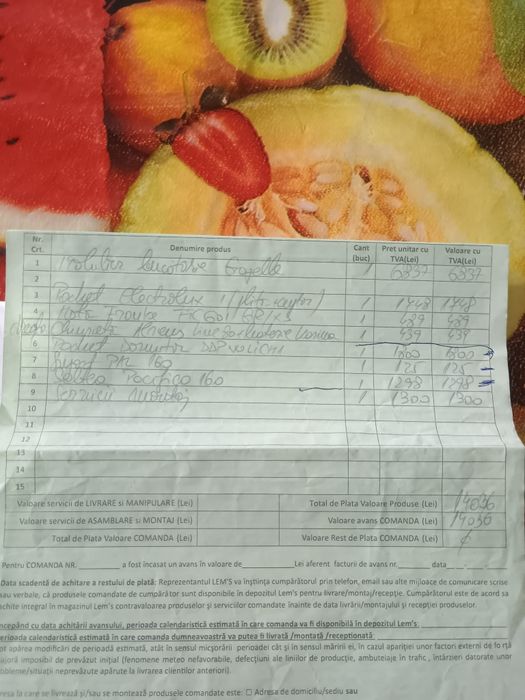 Nr. Crt. Denumire produs Cant (buc) Pret unitar cu TVA(Lei) Valoare cu TVA(Lei)
1 bucatarie 1 6837 6837
2
3 Pachet Electrolux 1 1748 1748
4 1 489 489
1 439 439
6 Pachet Dormitor 1 1800 1800
7 PAL 160 1 125 125
8 Saltea Pacifico 160 1 1298 1298
9 Servicii 1 1300 1300
10
11
12
13
14
15
Valoare servicii de LIVRARE si MANIPULARE (Lei) Total de Plata Valoare Produse (Lei) 14036
Valoare servicii de ASAMBLARE si MONTAJ (Lei) Valoare avans COMANDA (Lei) 14036
Total de Plata Valoare COMANDA (Lei) Valoare Rest de Plata COMANDA (Lei)
Pentru COMANDA NR. a fost încasat un avans în valoare de Lei aferent facturii de avans nr. data
Data scadentă de achitare a restului de plată: Reprezentantul LEM'S va înștiința cumpărătorul prin telefon, email sau alte mijloace de comunicare scrise
sau verbale, că produsele comandate de cumpărător sunt disponibile în depozitul Lem's pentru livrare/montaj/recepție. Cumpărătorul este de acord sa
achite integral în magazinul Lem's contravaloarea produselor și serviciilor comandate inainte de data livrării/montajului și recepției produselor.
ncepând cu data achitării avansului, perioada calendaristică estimată în care comanda va fi disponibilă în depozitul Lem's
erioada calendaristică estimată în care comanda dumneavoastră va putea fi livrată /montată /receptionată
ot apărea modificări de perioadă estimată, atât în sensul micșorării perioadei cât și în sensul măririi ei, în cazul apariției unor factori externi de forță
ajoră imposibil de prevăzut inițial (fenomene meteo nefavorabile, defecțiuni ale liniilor de producție, ambuteiaje în trafic, întârzieri datorate unor
obleme/situații neprevăzute apărute la livrarea clienților anteriori).
resa la care se livrează și/sau se montează produsele comandate este: ☐ Adresa de domiciliu/sediu sau